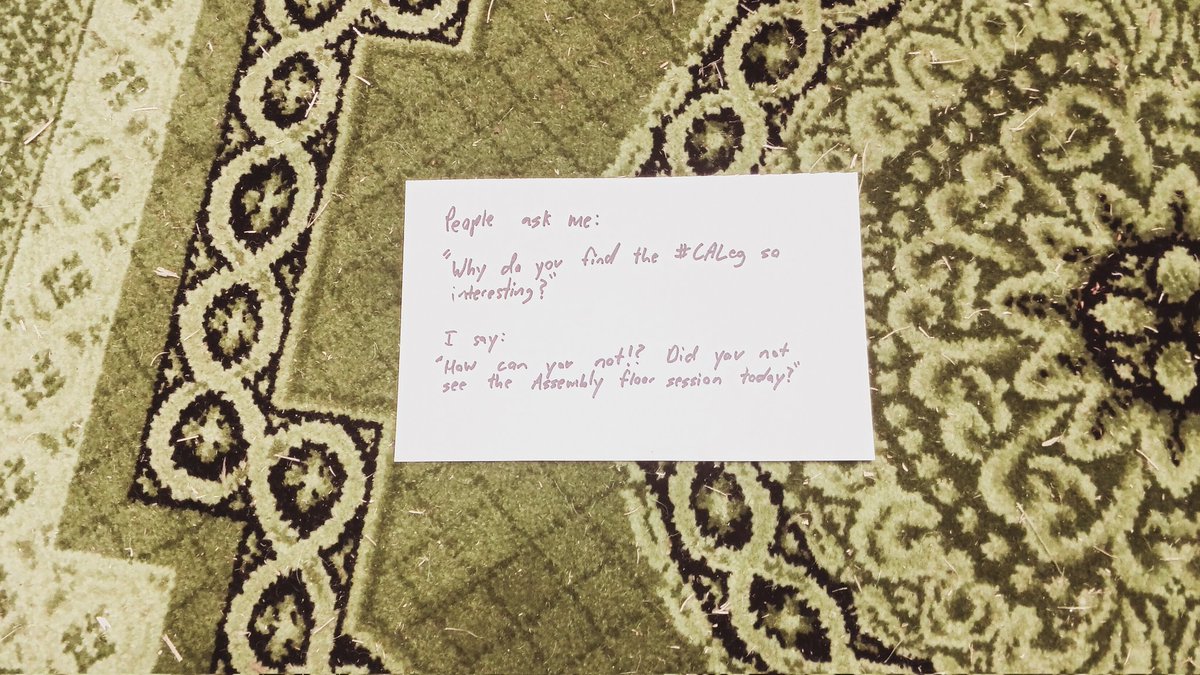 People ask me:
"Why do you find the #CALeg so
interesting?"
I say:
"How can you not!? Did you not
see the Assembly floor session today?"